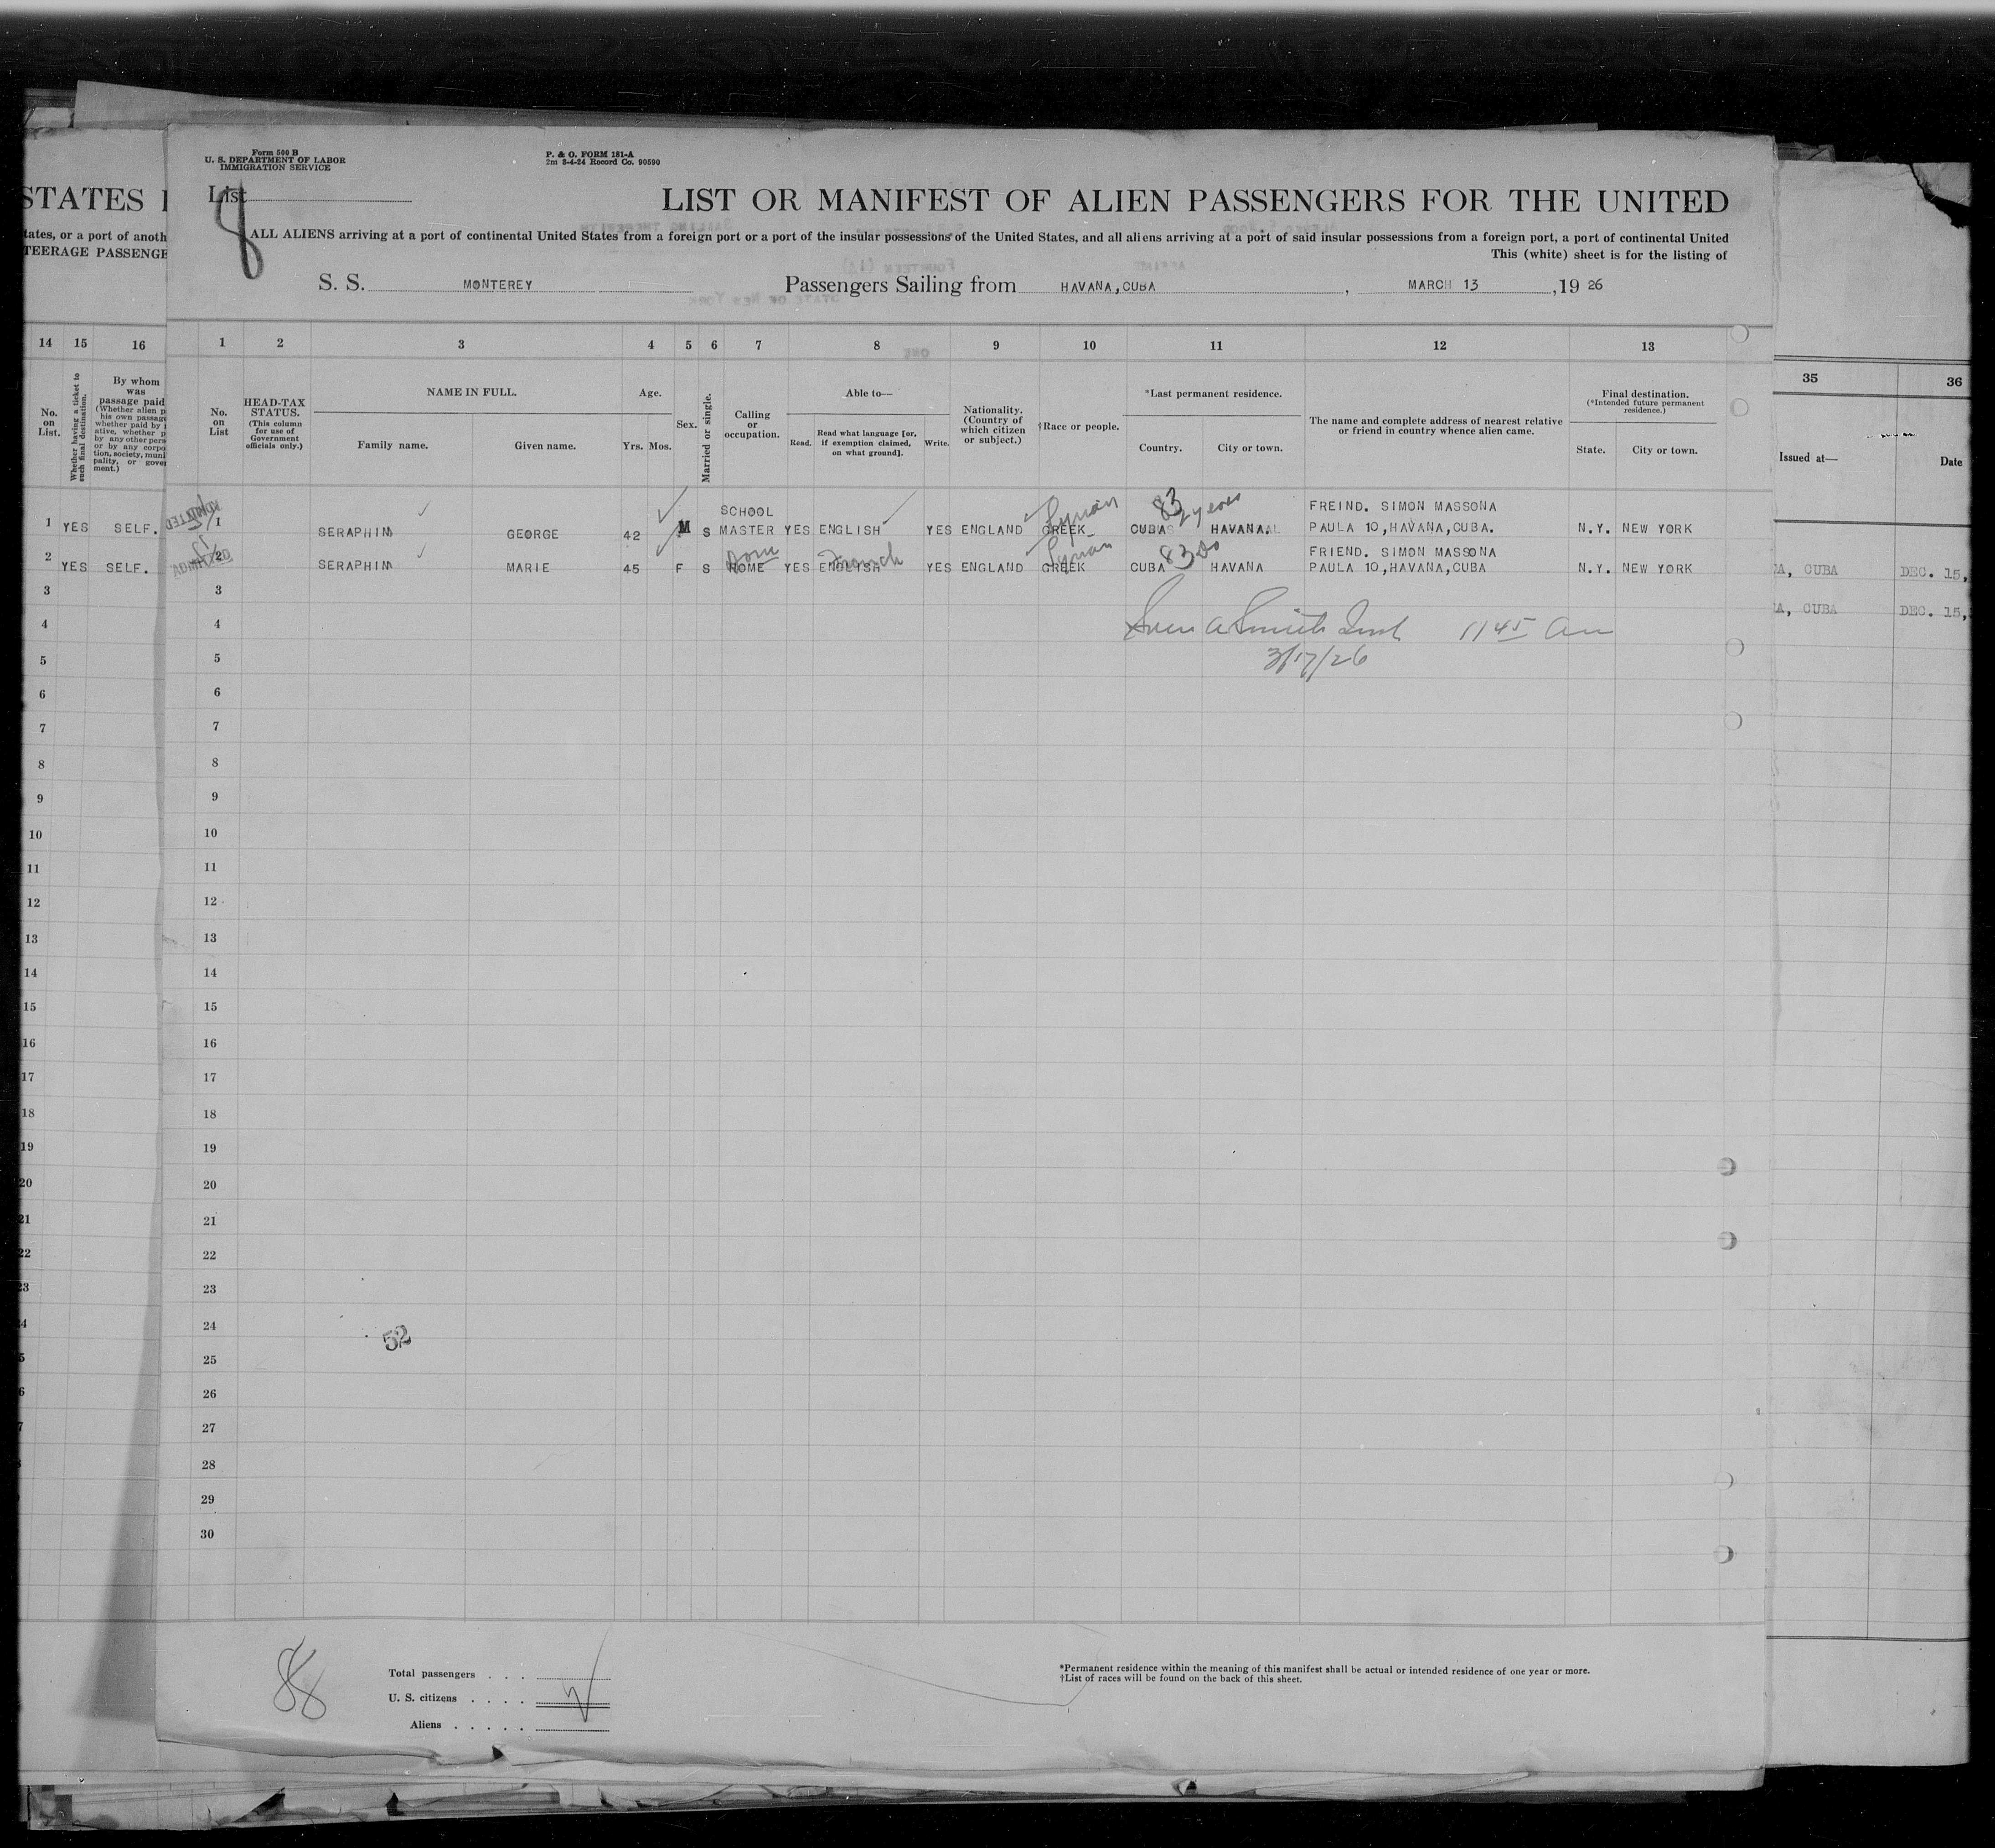 Form 500 B
U. S. DEPARTMENT OF LABOR
IMMIGRATION SERVICE
P. & O. FORM 181-A
2m 8-4-24 Record Co. 90590
STATES
List
8
LIST OR MANIFEST OF ALIEN PASSENGERS FOR THE UNITED
tates, or a port of anoth
TEERAGE PASSENGE
ALL ALIENS arriving at a port of continental United States from a foreign port or a port of the insular possessions of the United States, and all aliens arriving at a port of said insular possessions from a foreign port, a port of continental United
This (white) sheet is for the listing of
S. S. MONTEREY Passengers Sailing from HAVANA, CUBA, MARCH 13, 1926
14 15 16 1 2 3 4 5 6 7 8 9 10 11 12 13 35 36
No. on List.
Whether having a ticket to such final destination.
By whom was passage paid
(Whether alien p
his own passage
whether paid by
ative, whether p
by any other pers
or by any corpo
tion, society, muni
pality, or gover
ment.)
No. on List
HEAD-TAX STATUS.
(This column for use of Government officials only.)
NAME IN FULL.
Family name. Given name.
Age.
Yrs. Mos.
Sex.
Married or single.
Calling or occupation.
Able to—
Read. Read what language [or, if exemption claimed, on what ground]. Write.
Nationality. (Country of which citizen or subject.)
†Race or people.
*Last permanent residence.
Country. City or town.
The name and complete address of nearest relative or friend in country whence alien came.
Final destination.
(*Intended future permanent residence.)
State. City or town.
Issued at— Date
1 YES SELF. ADMITTED 1 SERAPHIM GEORGE 42 M S SCHOOL MASTER YES ENGLISH YES ENGLAND GREEK Syrian CUBA 83 2 years HAVANA. FREIND. SIMON MASSONA PAULA 10, HAVANA, CUBA. N.Y. NEW YORK
2 YES SELF. ADMITTED 2 SERAPHIM MARIE 45 F S HOME YES ENGLISH French YES ENGLAND GREEK Syrian CUBA 83 do HAVANA FRIEND. SIMON MASSONA PAULA 10, HAVANA, CUBA N.Y. NEW YORK
A, CUBA DEC. 15,
A, CUBA DEC. 15,
3 3
4 4 Smith 11 45 am
5 5 3/17/26
6 6
7 7
8 8
9 9
10 10
11 11
12 12
13 13
14 14
15 15
16 16
17 17
18 18
19 19
20 20
21 21
22 22
23 23
24 24
52
25
26
27
28
29
30
88
Total passengers . . .
U. S. citizens . . . .
Aliens . . . . .
*Permanent residence within the meaning of this manifest shall be actual or intended residence of one year or more.
†List of races will be found on the back of this sheet.